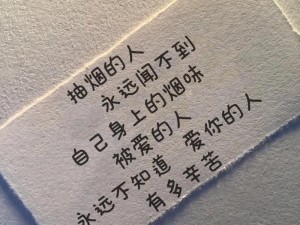 抽烟的人
永远闻不到
自己身上的烟味
被爱的人
永远不知道 爱你的人
有多辛苦